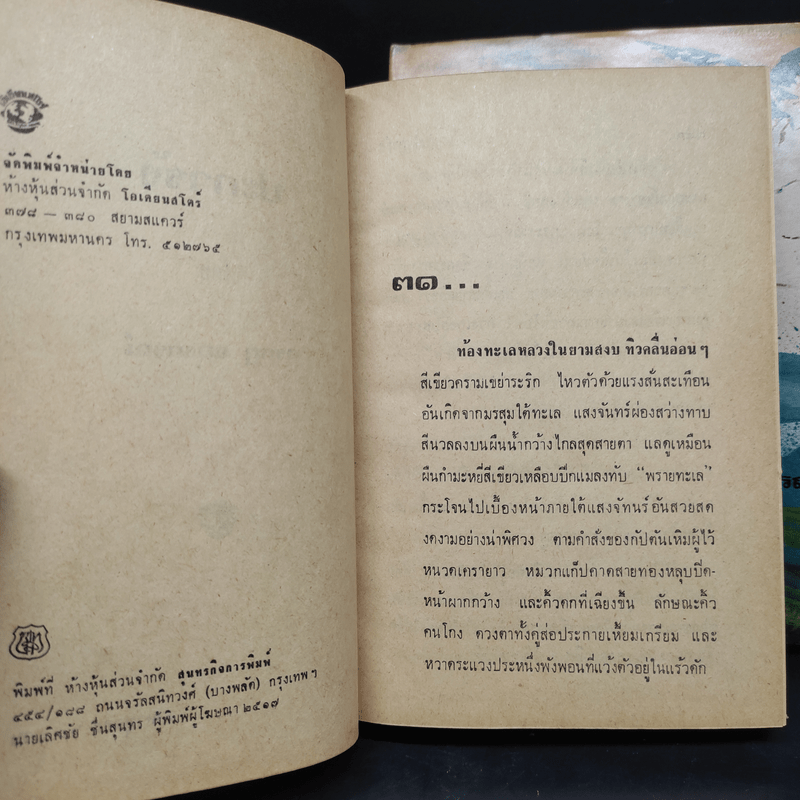 จัดพิมพ์จำหน่ายโดย
ห้างหุ้นส่วนจำกัด โอเดียนสโตร์
๓๗๘ — ๓๘๐ สยามสแควร์
กรุงเทพมหานคร โทร. ๕๑๒๗๖๕
พิมพ์ที่ ห้างหุ้นส่วนจำกัด สุนทรกิจการพิมพ์
๔๕๔/๑๘๘ ถนนจรัลสนิทวงศ์ (บางพลัด) กรุงเทพฯ
นายเลิศชัย ชื่นสุนทร ผู้พิมพ์ผู้โฆษณา ๒๕๑๗
๓๑...
ท้องทะเลหลวงในยามสงบ ทิวคลื่นอ่อนๆ
สีเขียวครามเขย่าระริก ไหวตัวด้วยแรงสั่นสะเทือน
อันเกิดจากมรสุมใต้ทะเล แสงจันทร์ผ่องสว่างทาบ
สีนวลลงบนผืนน้ำกว้างไกลสุดสายตา แลดูเหมือน
ผืนกำมะหยี่สีเขียวเหลือบปีกแมลงทับ “พรายทะเล”
กระโจนไปเบื้องหน้าภายใต้แสงจัทนร์อันสวยสด
งดงามอย่างน่าพิศวง ตามคำสั่งของกัปตันเหิมผู้ไว้
หนวดเครายาว หมวกแก๊ปคาดสายทองหลุบปิด-
หน้าผากกว้าง และคิ้วดกที่เฉียงขึ้น ลักษณะคิ้ว
คนโกง ดวงตาทั้งคู่ส่อประกายเหี้ยมเกรียม และ
หวาดระแวงประหนึ่งพังพอนที่แว้งตัวอยู่ในแร้วดัก